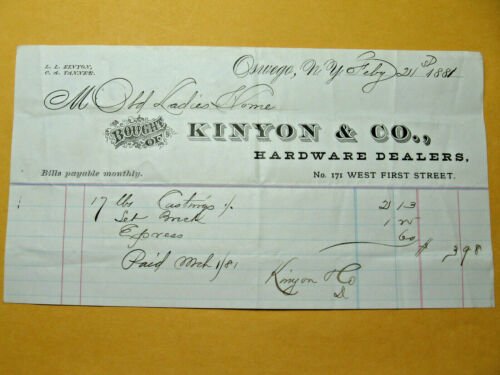 L. L. KINYON,
C. A. TANNER.
Oswego, N. Y. Feby 21st 1881
M Old Ladies Home
BOUGHT OF KINYON & CO.,
HARDWARE DEALERS,
Bills payable monthly.
No. 171 WEST FIRST STREET.
17 lbs Castings 2 13
Set Brick 1 25
Express 60 $ 3 98
Paid Mch 1/81
Kinyon & Co